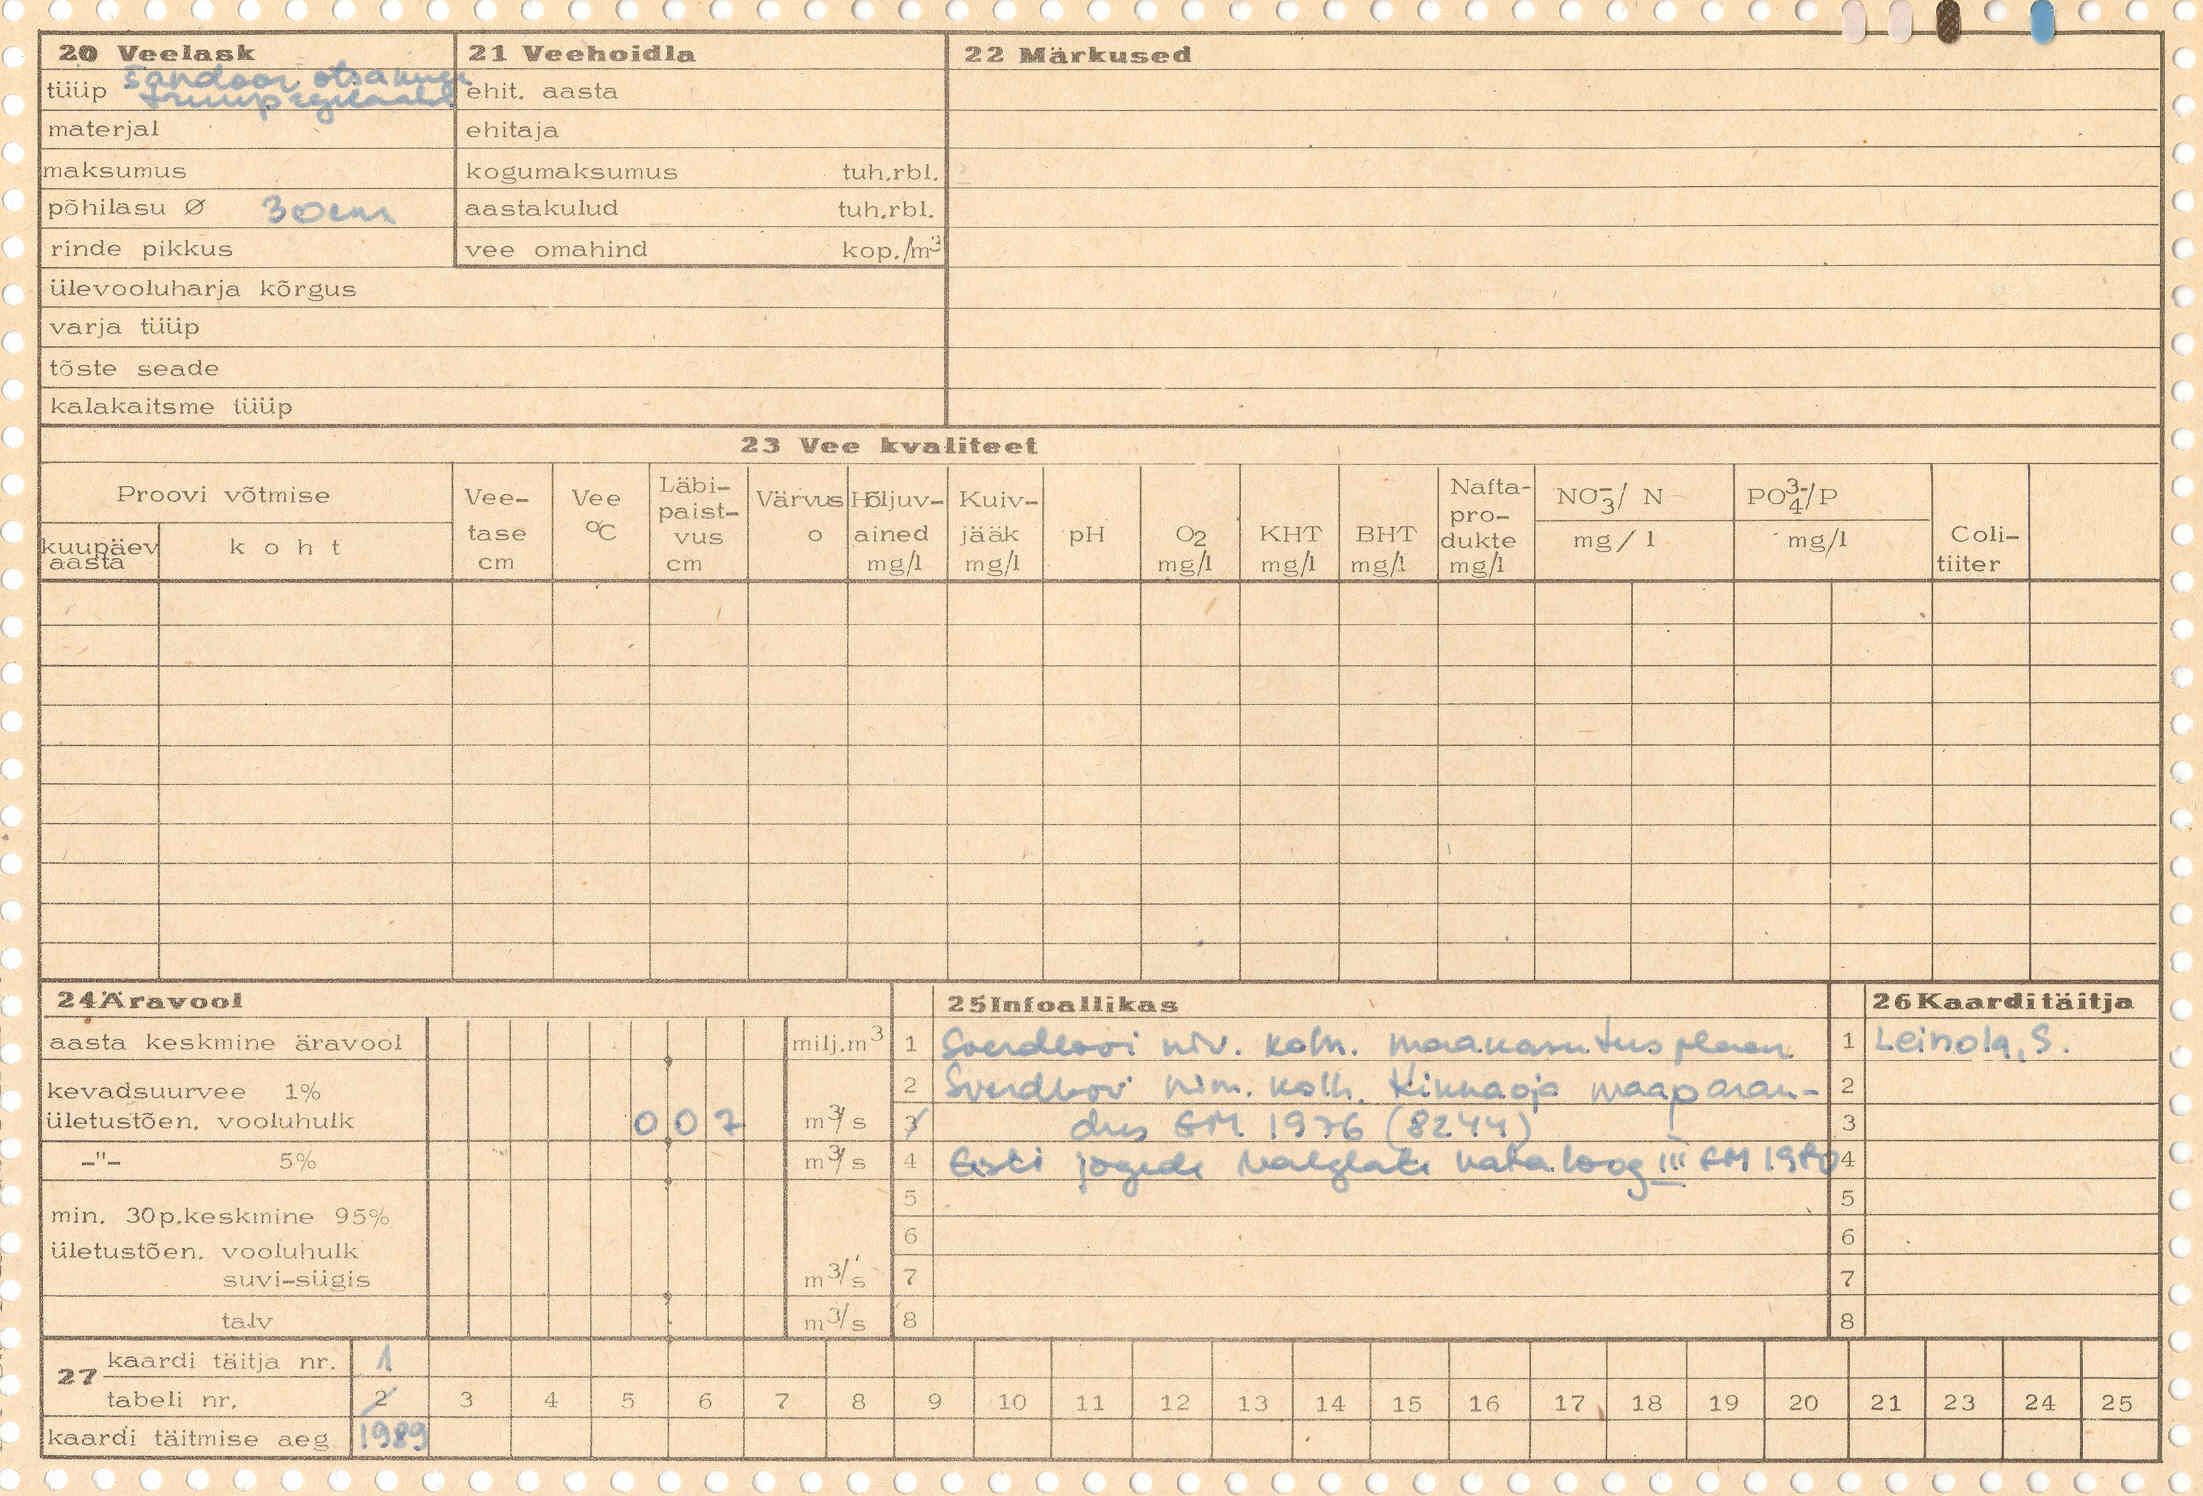 20 Veelask
tüüp šandoor otsakuga
truupregulaator
materjal
maksumus
põhilasu Ø 30cm
rinde pikkus
ülevooluharja kõrgus
varja tüüp
tõste seade
kalakaitsme tüüp
21 Veehoidla
ehit. aasta
ehitaja
kogumaksumus tuh.rbl.
aastakulud tuh.rbl.
vee omahind kop./m³
22 Märkused
23 Vee kvaliteet
Proovi võtmise
kuupäev
aasta
koht
Vee-
tase
cm
Vee
°C
Läbi-
paist-
vus
cm
Värvus
o
Hõljuv-
ained
mg/l
Kuiv-
jääk
mg/l
pH
O₂
mg/l
KHT
mg/l
BHT
mg/l
Nafta-
pro-
dukte
mg/l
NO₃⁻/ N
mg/l
PO₄³⁻/P
mg/l
Coli-
tiiter
24 Äravool
aasta keskmine äravool milj.m³
kevadsuurvee 1%
ületustõen. vooluhulk 0 0 7 m³/s
-"- 5% m³/s
min. 30p.keskmine 95%
ületustõen. vooluhulk
suvi-sügis m³/s
talv m³/s
25 Infoallikas
1 Sverdlovi nim. kolh. maakasutusplaan
2 Sverdlovi nim. kolh. Kinnaoja maaparan-
3 dus EM 1976 (8244)
4 Eesti jõgede valglate kataloog III EM 1980
5
6
7
8
26 Kaarditäitja
1 Leinola, S.
2
3
4
5
6
7
8
27 kaardi täitja nr. 1
tabeli nr. 2 3 4 5 6 7 8 9 10 11 12 13 14 15 16 17 18 19 20 21 23 24 25
kaardi täitmise aeg 1989